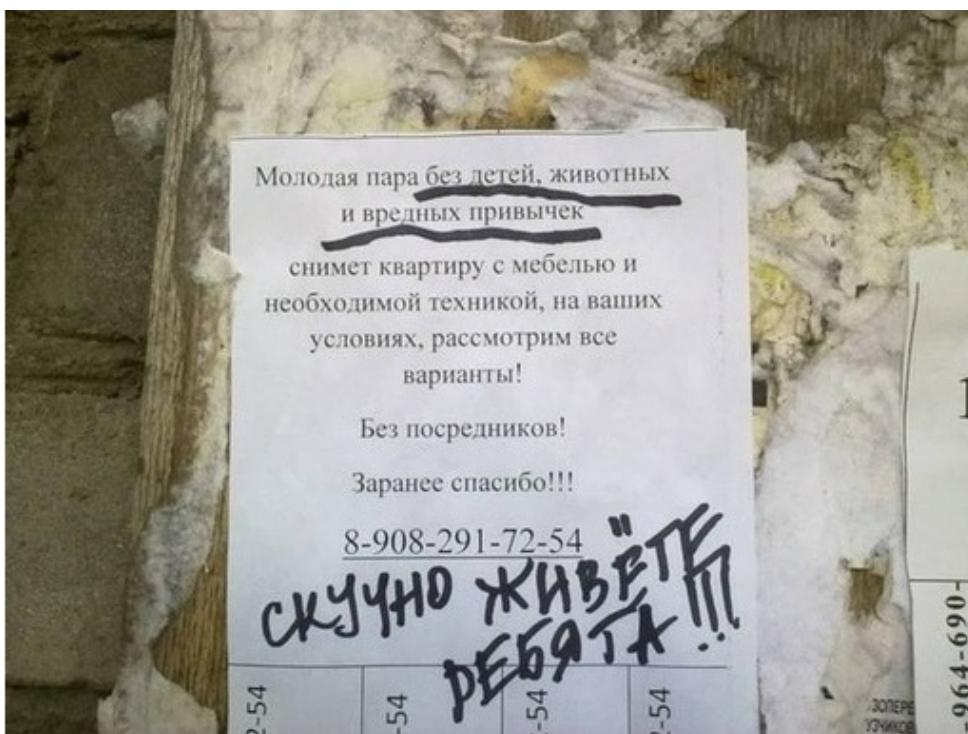 Молодая пара без детей, животных
и вредных привычек
снимет квартиру с мебелью и
необходимой техникой, на ваших
условиях, рассмотрим все
варианты!
Без посредников!
Заранее спасибо!!!
8-908-291-72-54
СКУЧНО ЖИВЁТЕ
РЕБЯТА!!!
2-54
-54
-54
2-54
1
-964-690-
ЗОПЕРЕ
УЗЧИКОВ